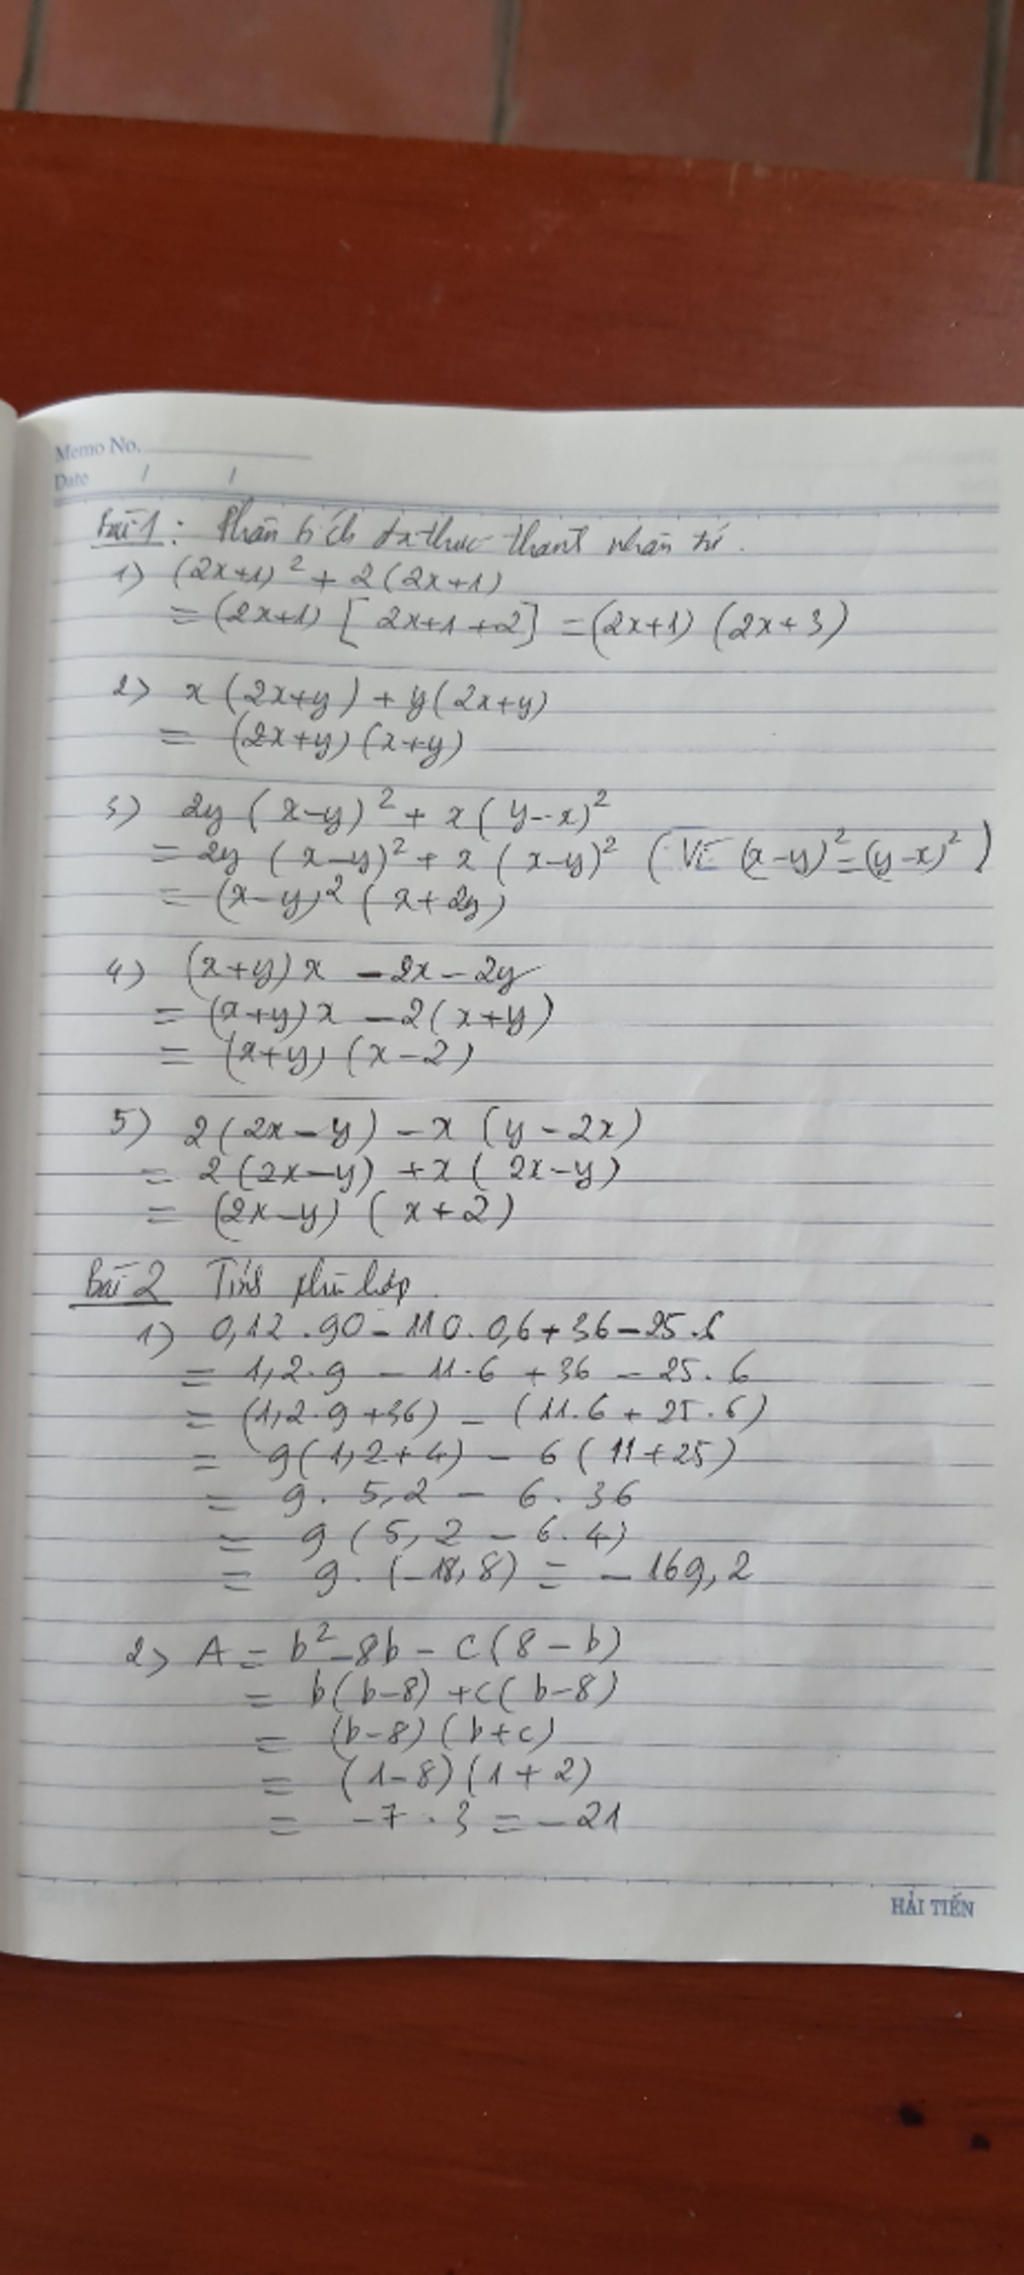 Memo No.
Date / /
Bài 1: Phân tích đa thức thành nhân tử.
1) (2x+1)² + 2(2x+1)
= (2x+1) [2x+1+2] = (2x+1) (2x+3)
2) x(2x+y) + y(2x+y)
= (2x+y)(x+y)
3) 2y(x-y)² + x(y-x)²
= 2y(x-y)² + x(x-y)² (Vì (x-y)² = (y-x)²)
= (x-y)² (x+2y)
4) (x+y)x - 2x - 2y
= (x+y)x - 2(x+y)
= (x+y)(x-2)
5) 2(2x-y) - x(y-2x)
= 2(2x-y) + x(2x-y)
= (2x-y)(x+2)
Bài 2 Tính phù hợp.
1) 0,12.90 - 110.0,6 + 36 - 25.6
= 1,2.9 - 11.6 + 36 - 25.6
= (1,2.9+36) - (11.6 + 25.6)
= 9(1,2+4) - 6(11+25)
= 9. 5,2 - 6.36
= 9(5,2 - 6.4)
= 9.(-18,8) = -169,2
2) A = b² - 8b - c(8-b)
= b(b-8) + c(b-8)
= (b-8)(b+c)
= (1-8)(1+2)
= -7.3 = -21
HẢI TIẾN